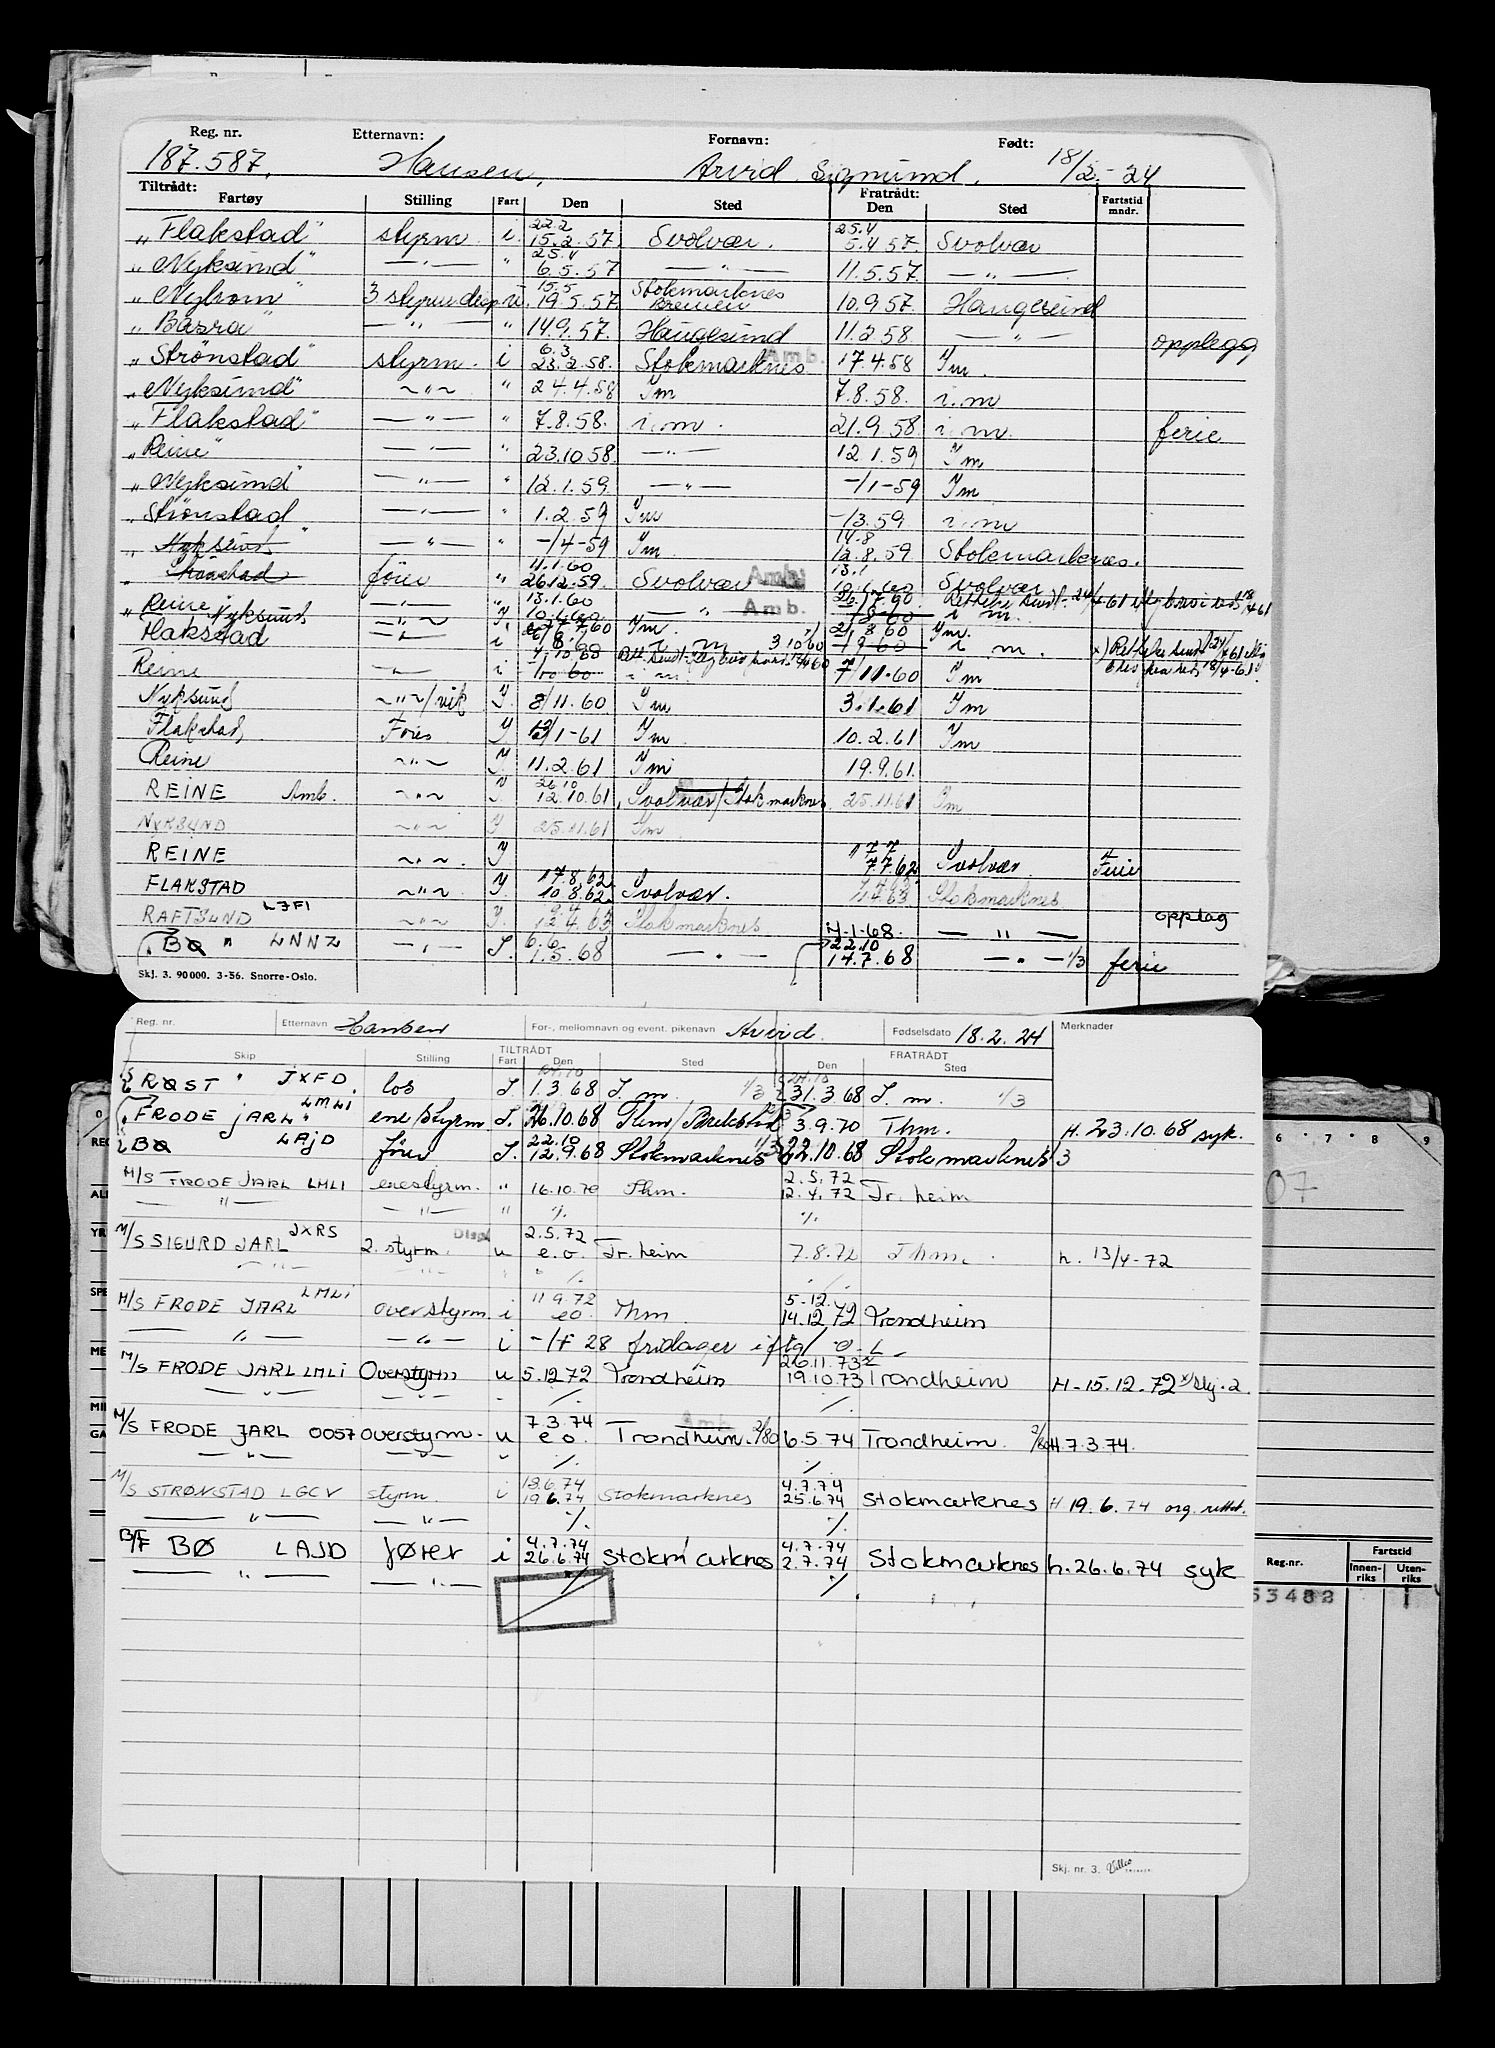 Reg. nr. Etternavn: Fornavn: Født:
187.587. Hansen, Arvid Sigmund. 18/2.- 24
Tiltrådt: Fratrådt:
Fartøy Stilling Fart Den Sted Den Sted Fartstid mndr.
22.2 25.4
"Flakstad" styrm. i. 15.2.57. Svolvær. 5.4.57. Svolvær
25.4
"Nyksund" — " — " 6.5.57 — " — 11.5.57. — " —
15.5 Stokmarknes
3 styrm disp. u. 19.5.57 Bremen 10.9.57. Haugesund
"Basra" — " — " 14.9.57. Haugesund 11.2.58. — " — opplegg
6.3 Amb.
"Strønstad" styrm. i 23.2.58. Stokmarknes 17.4.58 Im.
"Nyksund" ~ " ~ " 24.4.58 Im 7.8.58. i.m
"Flakstad" — " — " 7.8.58. i.m. 21.9.58 i.m. ferie
"Reine" — " — " 23.10.58. — " — 12.1.59 Im
"Nyksund" — " — " 12.1.59. — " — -/1-59 Im
"Strønstad — " — " 1.2.59 Im -/3.59. i.m
14.8
" Nyksund " — " — " -/4-59 Im. 12.8.59. Stokmarknes.
11.1.60 13.1
" Strønstad fører " 26.12.59. Svolvær Amb. Svolvær
13.1.60
" Reine " — " — " — " — Amb.
Nyksund ~ " ~ Y. Im. Im.
Flakstad — " — i i m i m.
Reine — " — i i m 7/11.60 Im
Nyksund ~ " ~ /vik Y. 8/11.60 Im 3.1.61 Im
Flakstad Fører Y. /1-61 Im 10.2.61 Im
Reine ~ " ~ Y. 11.2.61 Im 19.9.61.
26.10
REINE Amb. ~ " ~ Y. 12.10.61, Svolvær/Stokmarknes. 25.11.61 Im
NYKSUND ~ " ~ Y 25.11.61 Im.
17.7
REINE ~ " ~ . Y 7.7.62 Svolvær Ferie
17.8.62
FLAKSTAD ~ " ~ Y. 10.8.62. Svolvær. 11.4.63 Stokmarknes
LJFI
RAFTSUND ~ " ~ Y. 12.4.63 Stokmarknes -1-68. — " — opplag
6.6 22.10
" BØ " LNNZ — " — I. 1.5.68 — " — 14.7.68 — " — 1/3 ferie
Skj. 3. 90 000. 3-56. Snorre-Oslo.
Reg. nr. Etternavn Hansen For-, mellomnavn og event. pikenavn Arvid. Fødselsdato 18.2.24 Merknader
TILTRÅDT FRATRÅDT
Skip Stilling Fart Den Sted Den Sted
RØST " JXFD. los I. 1.3.68 I. m. 1/3 31.3.68 I. m. 1/3
LMLI
"FRODE JARL " ene/styrm I. 26.10.68 Thm/Brekstad 3.9.70 Thm. H. 23.10.68 syk.
22.10
BØ LAJD fører I. 12.9.68 Stokmarknes 1/3 22.10.68 Stokmarknes 3
2.5.72
M/S FRODE JARL LMLI enestyrm. " 16.10.70 Thm. 12.4.72 Tr.heim
— " — — " — " ./. ./.
JXRS Disp 2.5.72
M/S SIGURD JARL 2. styrm. u e.o. Tr.heim 7.8.72 Thm. h. 13/4-72
— " — — " — " ./. ./.
LMLI 11.9.72 5.12.
M/S FRODE JARL overstyrm. i eo. Thm. 14.12.72 Trondheim
— " — — " — i -/+ 28 fridager iflg
26.11.73
M/S FRODE JARL LMLI Overstyrm u 5.12.72 Trondheim 19.10.73 Trondheim H-15.12.72
— " — — " — ./. ./.
7.3.74 Amb.
M/S FRODE JARL 0057 overstyrm. u e.o. Trondheim. 2/80 6.5.74 Trondheim. 2/80 H 7.3.74.
— " — — " — " ./. ./.
18.6.74 4.7.74
M/S STRØNSTAD LGCV styrm. i 19.6.74 Stokmarknes 25.6.74 Stokmarknes H 19.6.74 org. rettet.
— " — — " — ./. ./.
4.7.74 4.7.74
B/F BØ LAJD fører i 26.6.74 Stokmarknes 2.7.74 Stokmarknes h. 26.6.74 syk
— " — — " — ./. ./.
Skj. nr. 3.
6 7 8 9
07
Reg.nr. Fartstid
Innen-riks Uten-riks